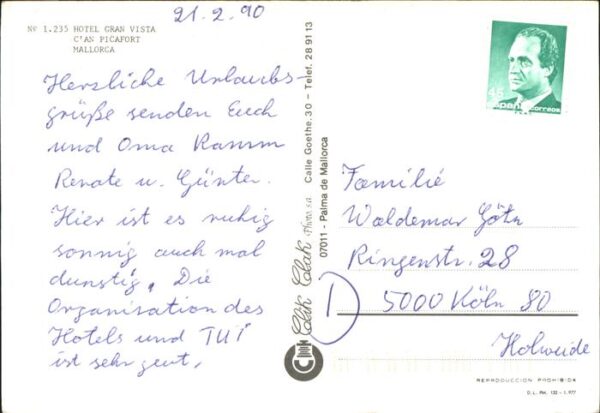 21.2.90
Nº 1.235 HOTEL GRAN VISTA
C'AN PICAFORT
MALLORCA
Herzliche Urlaubs-
grüße senden Euch
und Oma Ramm
Renate u. Günter.
Hier ist es ruhig
sonnig auch mal
dunstig. Die
Organisation des
Hotels und TUI
ist sehr gut.
Clik Clak Photo s.a. Calle Goethe, 30 - Telef. 28 91 13
07011 - Palma de Mallorca
45
España correos
Familie
Waldemar Götz
Ringenstr. 28
5000 Köln 80
Holweide
REPRODUCCION PROHIBIDA